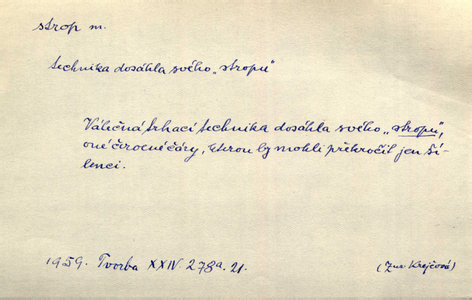 strop m.
technika dosáhla svého „stropu"
Válečná trhací technika dosáhla svého „stropu",
oné čáry, kterou by mohli překročit jen ší-
lenci.
1959. Tvorba XXIV. 278a. 21.
(Zuz. Krejčová)